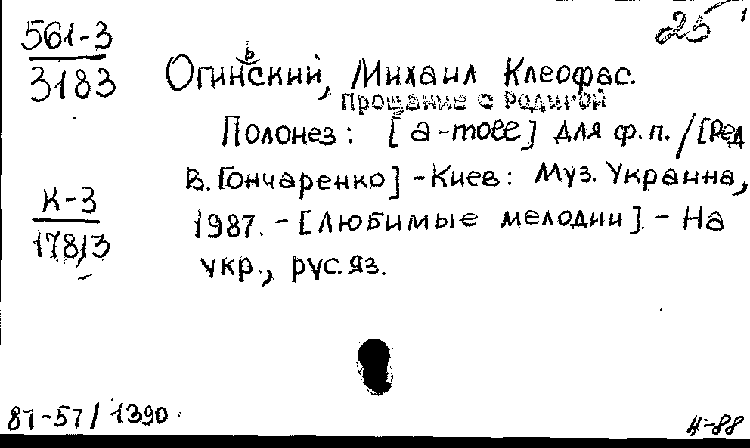 25
561-3
3183
Огиньский, Михаил Клеофас.
Прощание с Родиной
Полонез: [a-moll] для ф.п. / [Ред
В. Гончаренко] - Киев: Муз. Украина,
К-3
17813
1987. - [Любимые мелодии]. - На
укр., рус. яз.
87-57/1390.
4-88